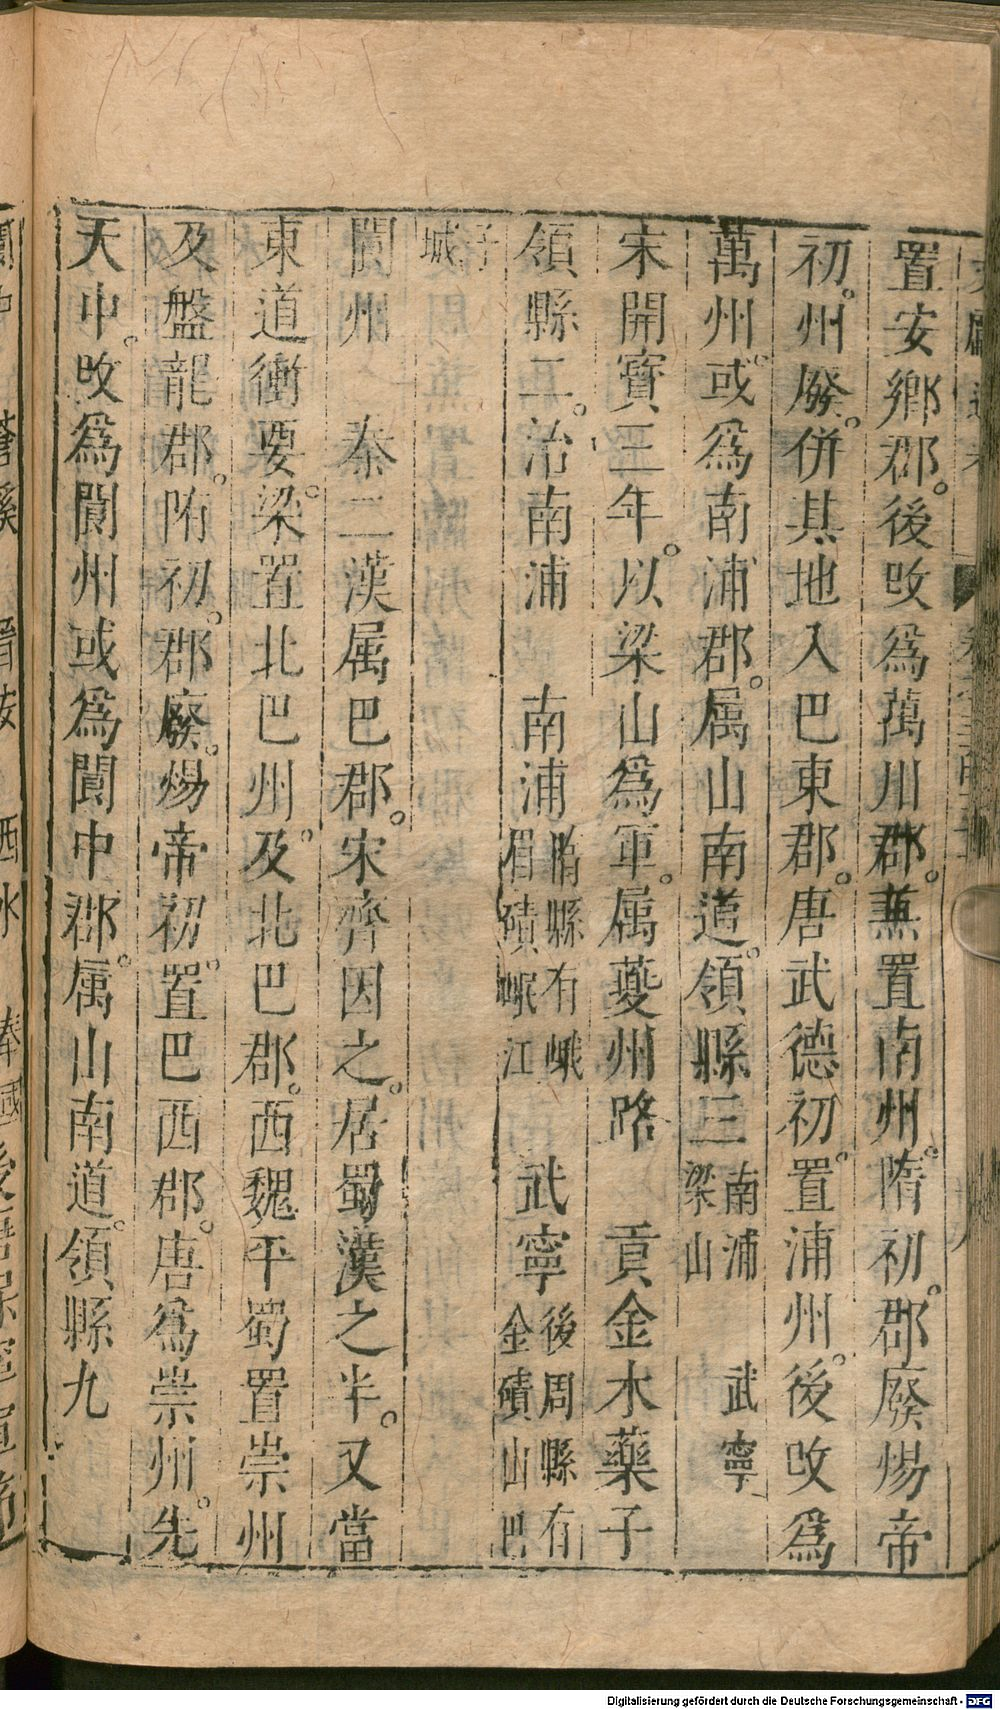 置安鄉郡。後改爲萬川郡。蕉置南州。隋初。郡廢煬帝
初。州廢。併其地入巴東郡。唐武德初。置浦州。後改爲
萬州。或爲南浦郡。属山南道。領縣三南浦 武寧 梁山
宋開寶三年。以梁山爲軍。属夔州路 貢金木藥子
領縣二。治南浦 南浦隋縣有峨眉磧岷江 武寧後周縣有金磧山巴
子城
閬州 秦二漢属巴郡。宋齊因之。居蜀漢之半。又當
東道衝要。梁置北巴州。及北巴郡。西魏平蜀置崇州
及盤龍郡。隋初。郡廢。煬帝初。置巴西郡。唐爲崇州。先
天中。改爲閬州或爲閬中郡。属山南道。領縣九
閬中 蒼溪 晉安 西水 奉國
Digitalisierung gefördert durch die Deutsche Forschungsgemeinschaft - DFG